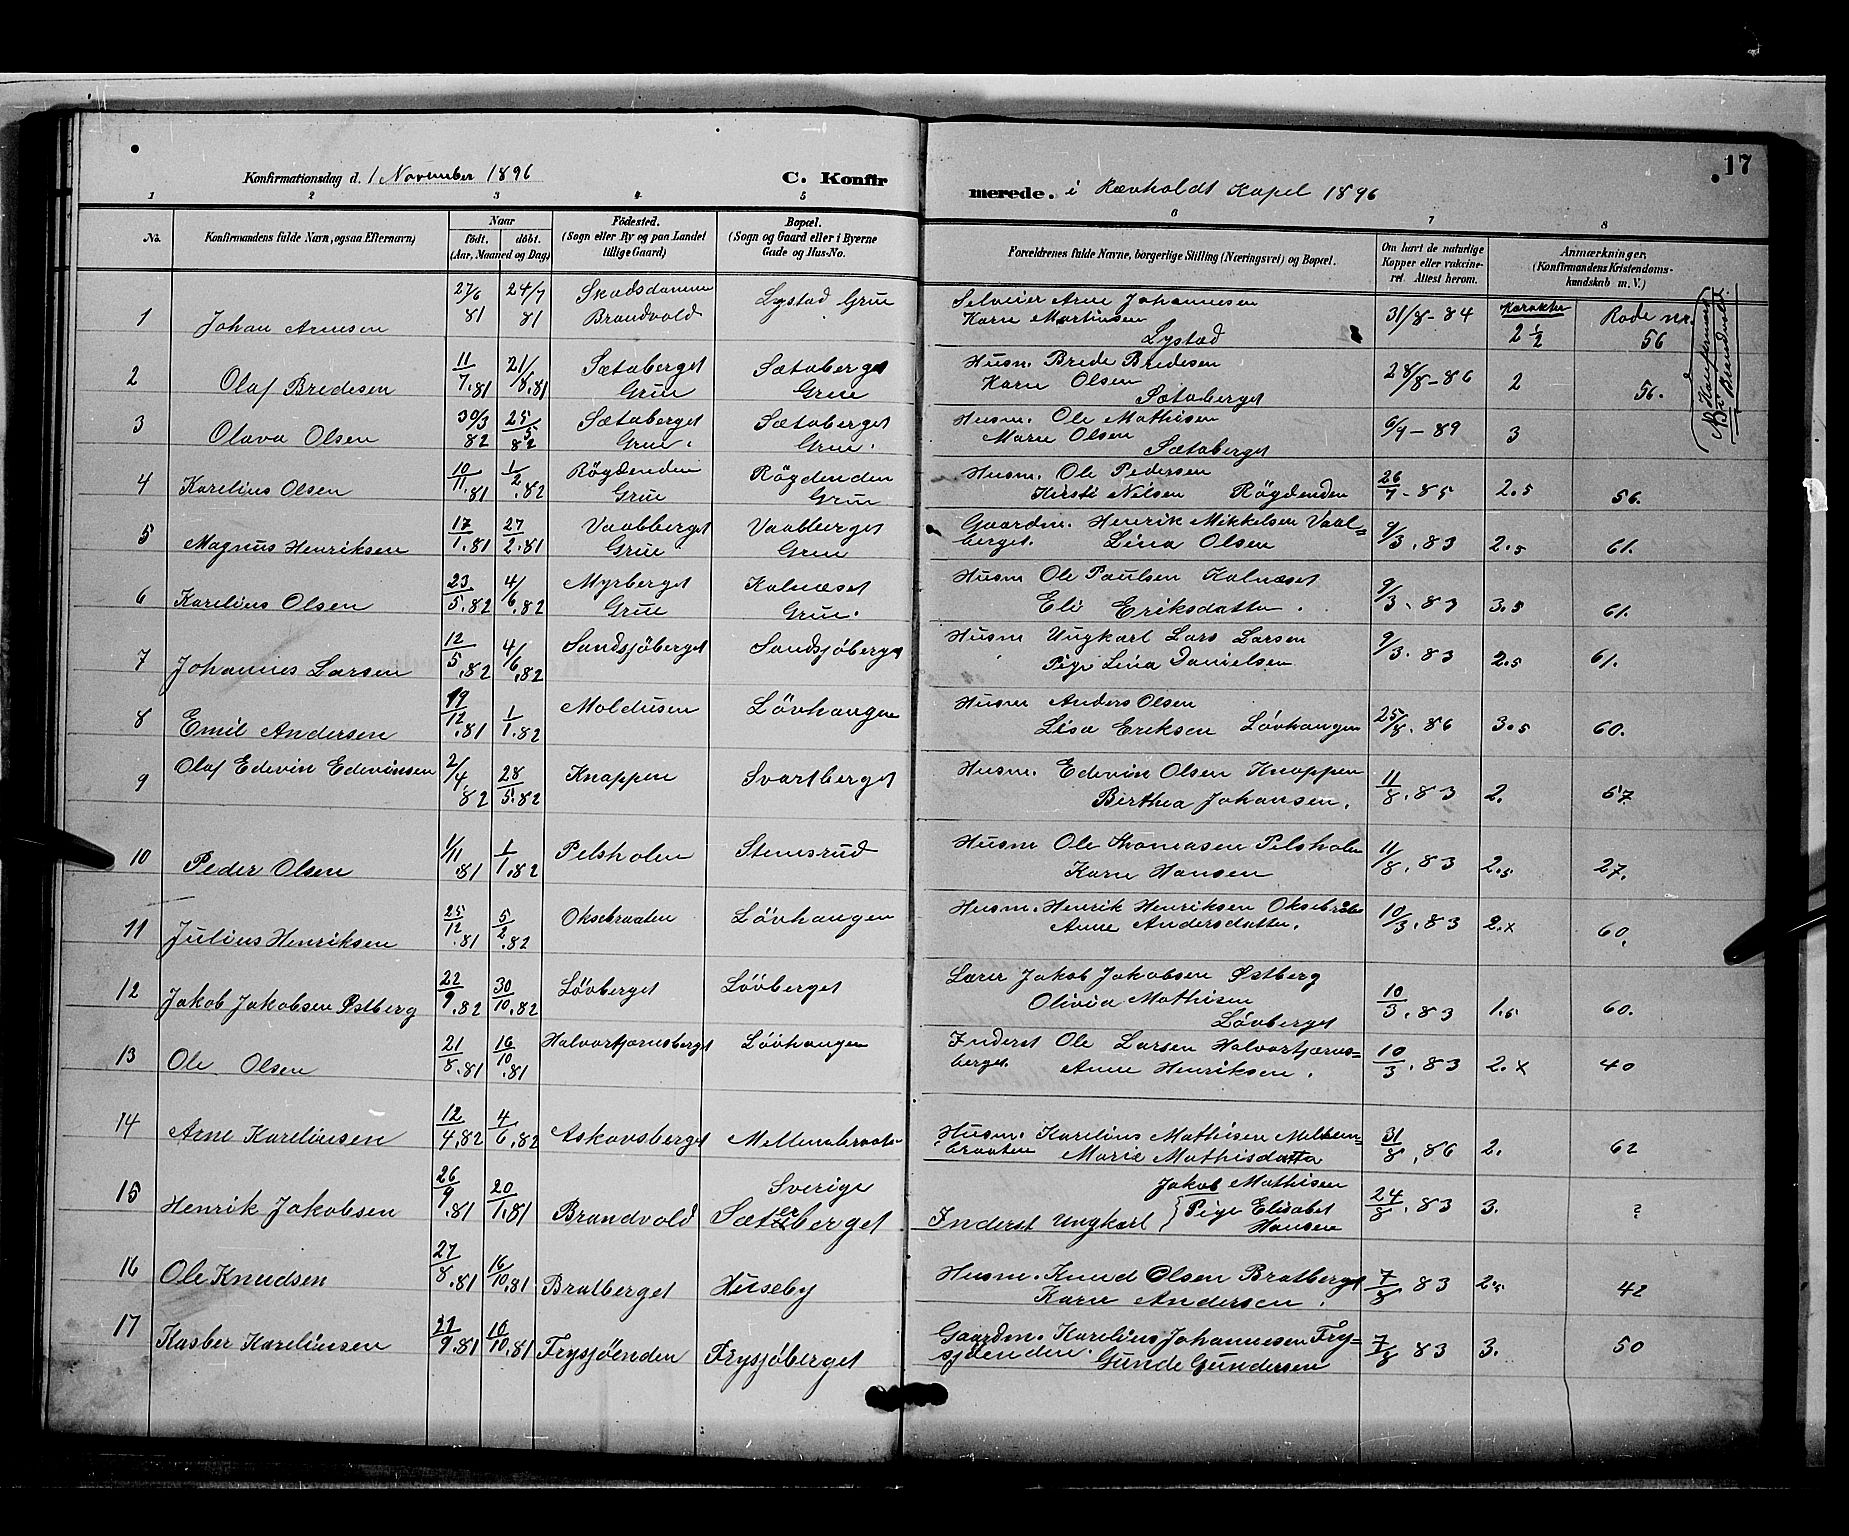 17
Konfirmationsdag d. 1 November 1896 C. Konfirmerede. i Rævholdt Kapel 1896
1 2 3 4 5 6 7 8
No. Konfirmandens fulde Navn, ogsaa Efternavn) Naar født. døbt. (Aar, Maaned og Dag) Fødested. (Sogn eller By og paa Landet tillige Gaard) Bopæl. (Sogn og Gaard eller i Byerne Gade og Hus-No. Forældrenes fulde Navne, borgerlige Stilling (Næringsvei) og Bopæl. Om havt de naturlige Kopper eller vaccineret Attest herom. Anmærkninger. (Konfirmandens Kristendomskundskab m. V.)
Karakter Rode nr.
1 Johan Arnesen 27/6 81 24/7 81 Skadsdammen Brandvold Lystad Grue Selveier Arne Johannesen
Karen Martinsen
Lystad 31/8-84 2 1/2 56
2 Olaf Bredesen 11/7.81 21/8.81 Sætaberget Grue Sætaberget Grue Husm. Brede Bredesen
Karen Olsen
Sætaberget 28/8-86 2 56.
3 Olava Olsen 30/3 82 25/5 82 Sætaberget Grue. Sætaberget Grue. Husm. Ole Mathisen
Marie Olsen
Sætaberget 6/9-89 3
4 Karelius Olsen 10/11.81 1/2.82 Røgdenden Grue Røgdenden Grue Husm. Ole Pedersen
Kirsti Nilsen Røgdenden 26/7-85 2.5 56.
5 Magnus Henriksen 17/1.81 27/2.81 Vaalberget Grue Vaalberget Grue Gaardm. Henrik Mikkelsen Vaal=
berget. Lina Olsen 9/3.83 2.5 61.
6 Karelius Olsen 23/5.82 4/6.82 Myrberget Grue Kalnæset Grue. Husm Ole Paulsen Kalnæset
Eli Eriksdatter. 9/3.83 3.5 61.
7 Johannes Larsen 12/5.82 4/6.82 Sandsjøberget Sandsjøberget Husm Ungkarl Lars Larsen
Pige Lina Danielsen 9/3.83 2.5 61.
8 Emil Andersen 19/12.81 1/1.82 Moldusen Løvhaugen Husm Anders Olsen
Lisa Eriksen Løvhaugen 25/8.86 3.5 60.
9 Olaf Edevin Edevinsen 2/4 82 28/5.82 Knappen Svartberget Husm. Edevin Olsen Knappen
Birthea Johansen. 11/8.83 2. 67
10 Peder Olsen 1/11.81 1/1.82 Pelsholen Stemsrud Husm Ole Thomasen Pelsholen
Karen Hansen 11/8.83 2.5 27.
11 Julius Henriksen 25/12.81 5/2.82 Oksebraaten Løvhaugen Husm. Henrik Henriksen Oksebråten
Anne Andersdatter. 10/3.83 2.x 60.
12 Jakob Jakobsen Østberg 22/9.82 30/10.82 Løvberget Løvberget Lærer Jakob Jakobsen Østberg
Olivia Mathisen
Løvberget 10/3.83 1.5 60.
13 Ole Olsen 21/8.81 16/10.81 Halvortjernsberget Løvhaugen Inderst Ole Larsen Halvortjerns=
berget. Anne Henriksen. 10/3.83 2.x 40
14 Arne Karelinsen 12/4.82 4/6.82 Askavsberget Mellembraaten Husm. Karelius Mathisen Mellem=
braaten Marie Mathisdatter 31/8.86 2. 62
15 Henrik Jakobsen 26/9.81 20/1.81 Brandvold Sverige
Sæterberget Jakob Mathisen
Inderst Ungkarl Pige Elisabet
Hansen 24/8.83 3. ?
16 Ole Knudsen 27/8.81 16/10.81 Bratberget Huseby Husm. Knud Olsen Bratberget
Karen Andersen. 7/8 83 2.5 42
17 Kasber Karelinsen 21/9.81 16/10.81 Frysjøenden Frysjøberget Gaardm. Karelius Johannesen Fry=
sjøenden. Gunde Gundersen 7/8 83 3. 50